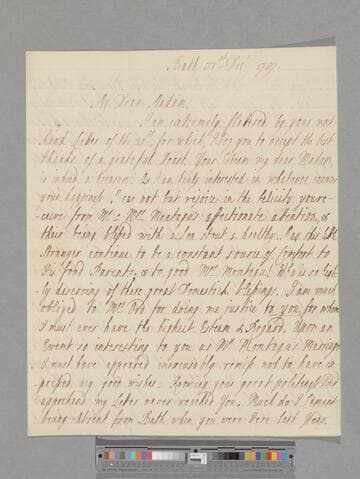 Bath Decr 1787.
My Dear Madam
I am extremely flattered by your most
kind Letter of the for which I beg you to accept the best
thanks of a grateful Heart. Your Esteem my dear Madam,
is indeed a treasure: & I am truly interested in whatever concerns
your happiness I can not but rejoice in the felicity you re-
ceive from Mr & Mrs Montagus affectionate attention, &
their being blessed with a Son stout & healthy. May this little
Stranger continue to be a constant source of Comfort to
his fond Parents, & to good Mrs Montagu! Who is so high-
ly deserving of these great Domestick Blessings. I am much
obliged to Mrs for doing me justice to you, for whom
I must ever have the highest Esteem & Regard. Upon an
Event so interesting to you as Mr Montagus Marriage
I must have appeared inexcusably remiss not to have ex-
pressed my good wishes. Knowing your great politeness I did
apprehend my Letter never reached you. Much do I lament
being absent from Bath when you were here last Year.